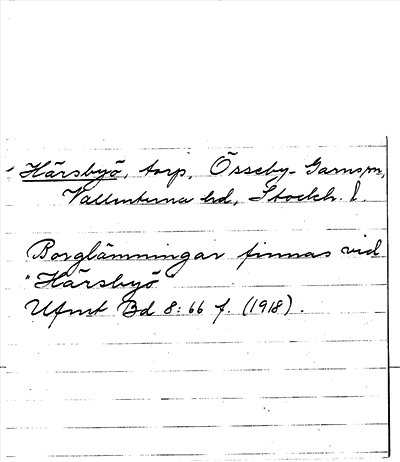 Härsbyö, torp, Össeby-Garns sn,
Vallentuna hd, Stockh. l.
Borglämningar finnas vid
"Härsbyö
Ufmt Bd 8:66 f. (1918).